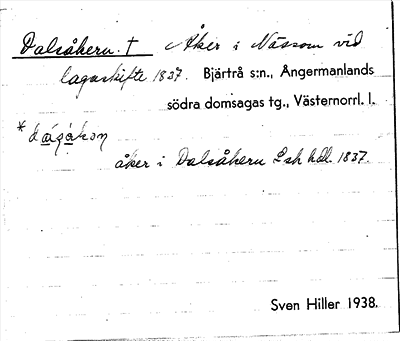 Dalsåkern. † Åker i Nässom vid
lagaskifte 1837. Bjärtrå s:n., Ångermanlands
södra domsagas tg., Västernorrl. l.
åker i Dalsåkern Lsk hdl. 1837.
Sven Hiller 1938.